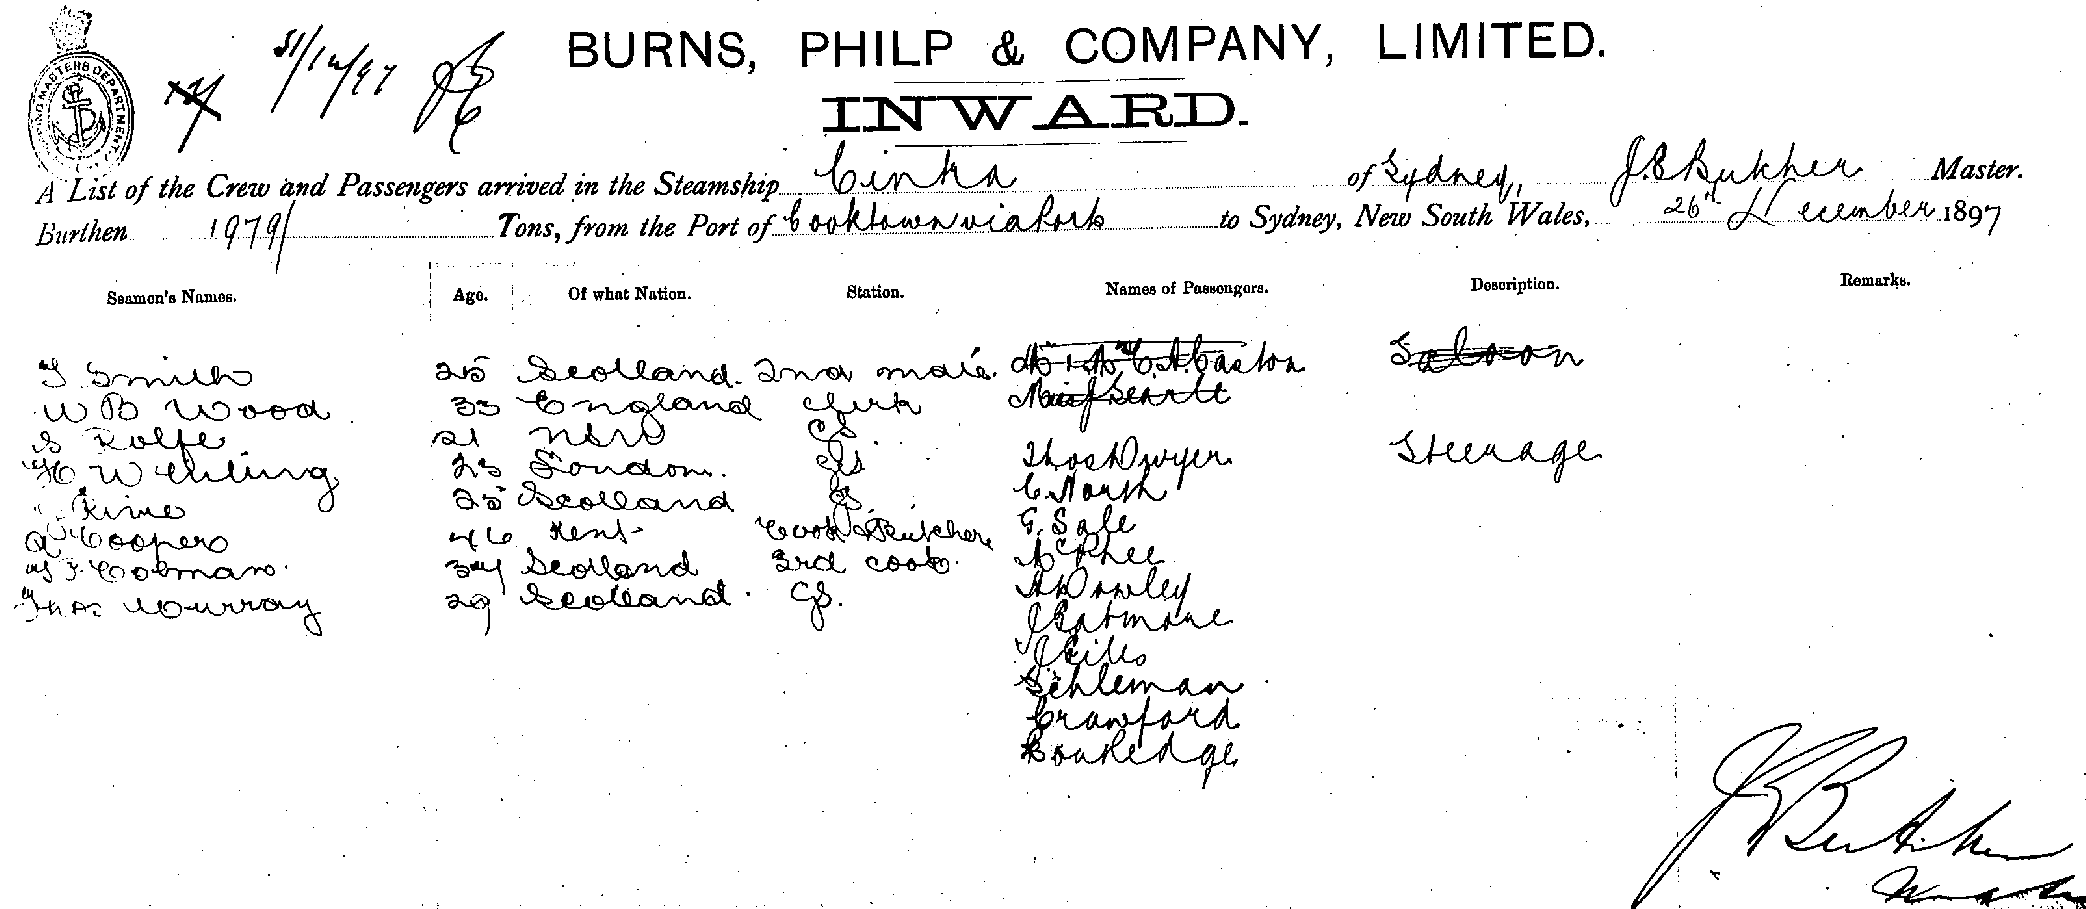 SHIPPING MASTERS DEPARTMENT
31/12/97
BURNS, PHILP & COMPANY, LIMITED.
INWARD.
A List of the Crew and Passengers arrived in the Steamship Cintra of Sydney, J.E. Butcher Master.
Burthen 1979 Tons, from the Port of Cooktown via Ports to Sydney, New South Wales, 26th December 1897
Seamen's Names. Age. Of what Nation. Station. Names of Passengers. Description. Remarks.
Smith 25 Scotland. 2nd mate. Saloon
W B Wood 33 England Clerk
S Rolfe 21 NSW GS
H Wehling 23 London. GS
25 Scotland GS
A Cooper 46 Kent Cook & Butcher
Colman 34 Scotland 3rd cook.
Thos. Murray 29 Scotland. GS.
Thos Dwyer Steerage
C. North
G. Sale
McPhee
Dowley
J Patmore
J Giles
Schleman
Crawford
Routledge
J E Butcher